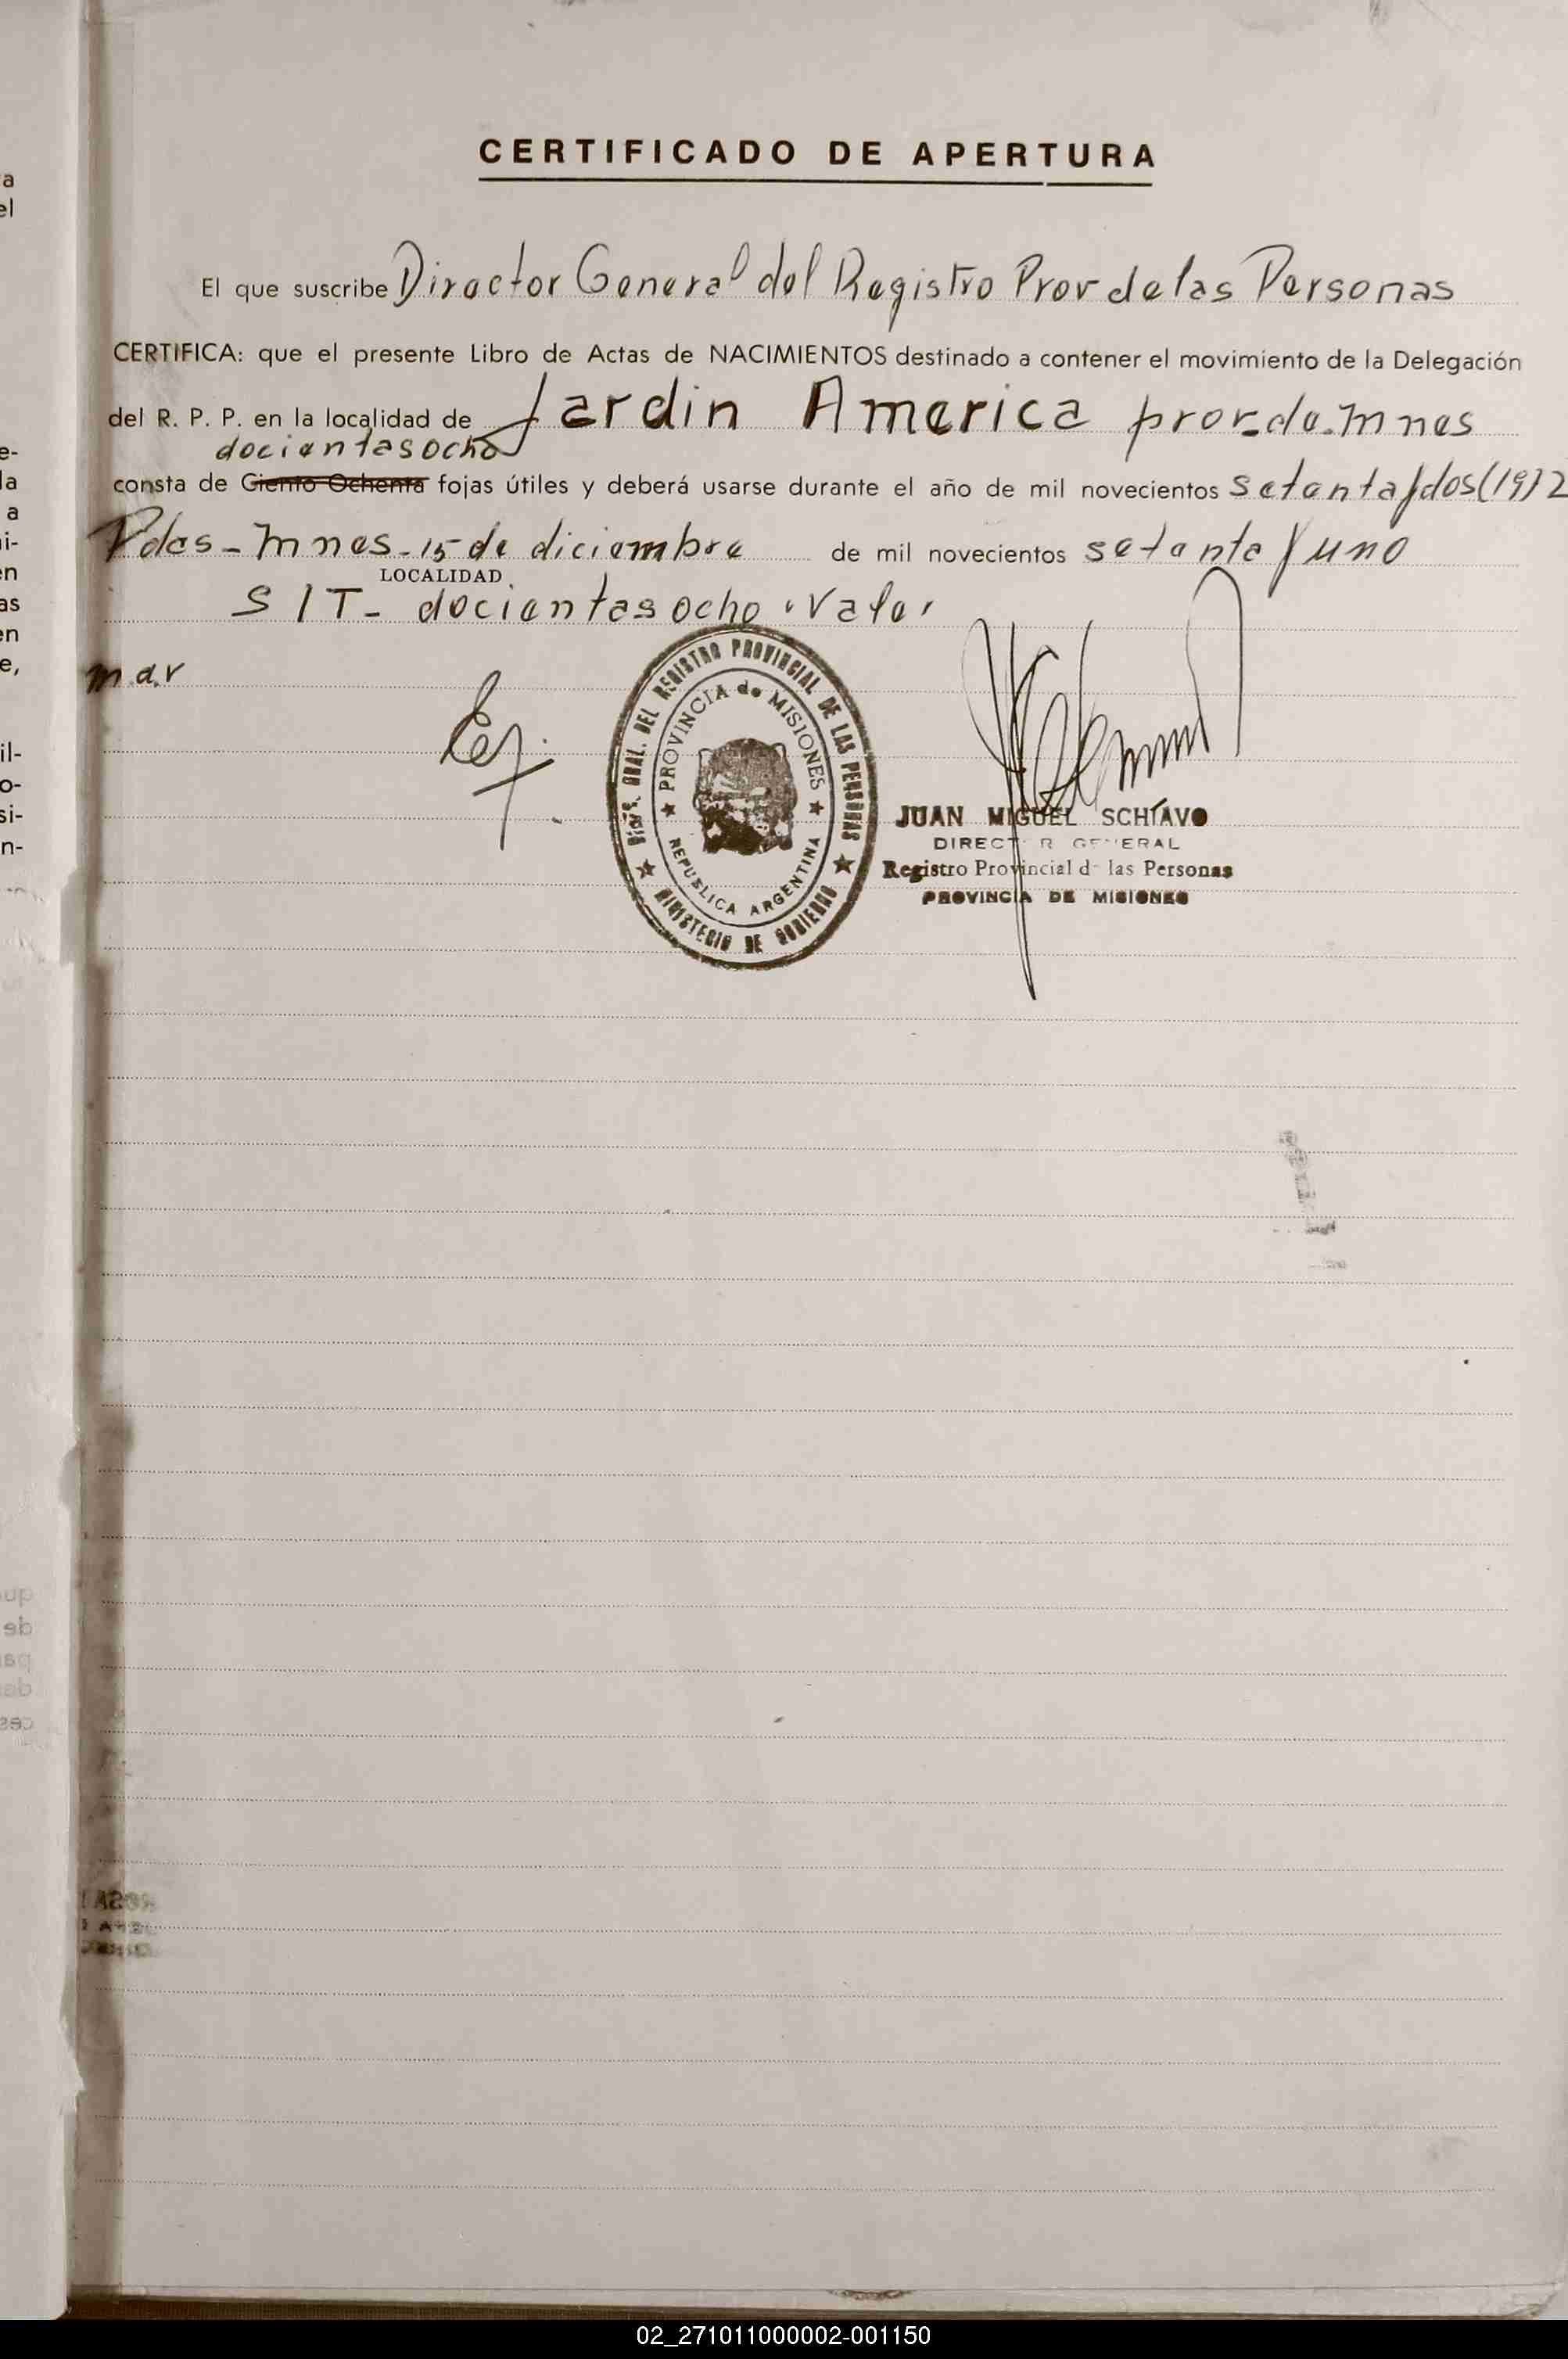 CERTIFICADO DE APERTURA
El que suscribe Director General del Registro Prov de las Personas
CERTIFICA: que el presente Libro de Actas de NACIMIENTOS destinado a contener el movimiento de la Delegación
del R. P. P. en la localidad de Jardin America prov. de. Mnes
docientas ocho
consta de Ciento Ochenta fojas útiles y deberá usarse durante el año de mil novecientos setenta y dos (1972
Pdas - Mnes - 15 de diciembre de mil novecientos setenta y uno
LOCALIDAD
S/T - docientas ocho. Vale.
m.a.r
DIRECC. GRAL. DEL REGISTRO PROVINCIAL DE LAS PERSONAS
PROVINCIA de MISIONES
REPUBLICA ARGENTINA
MINISTERIO DE GOBIERNO
JUAN MIGUEL SCHIAVO
DIRECTOR GENERAL
Registro Provincial de las Personas
PROVINCIA DE MISIONES
02_271011000002-001150